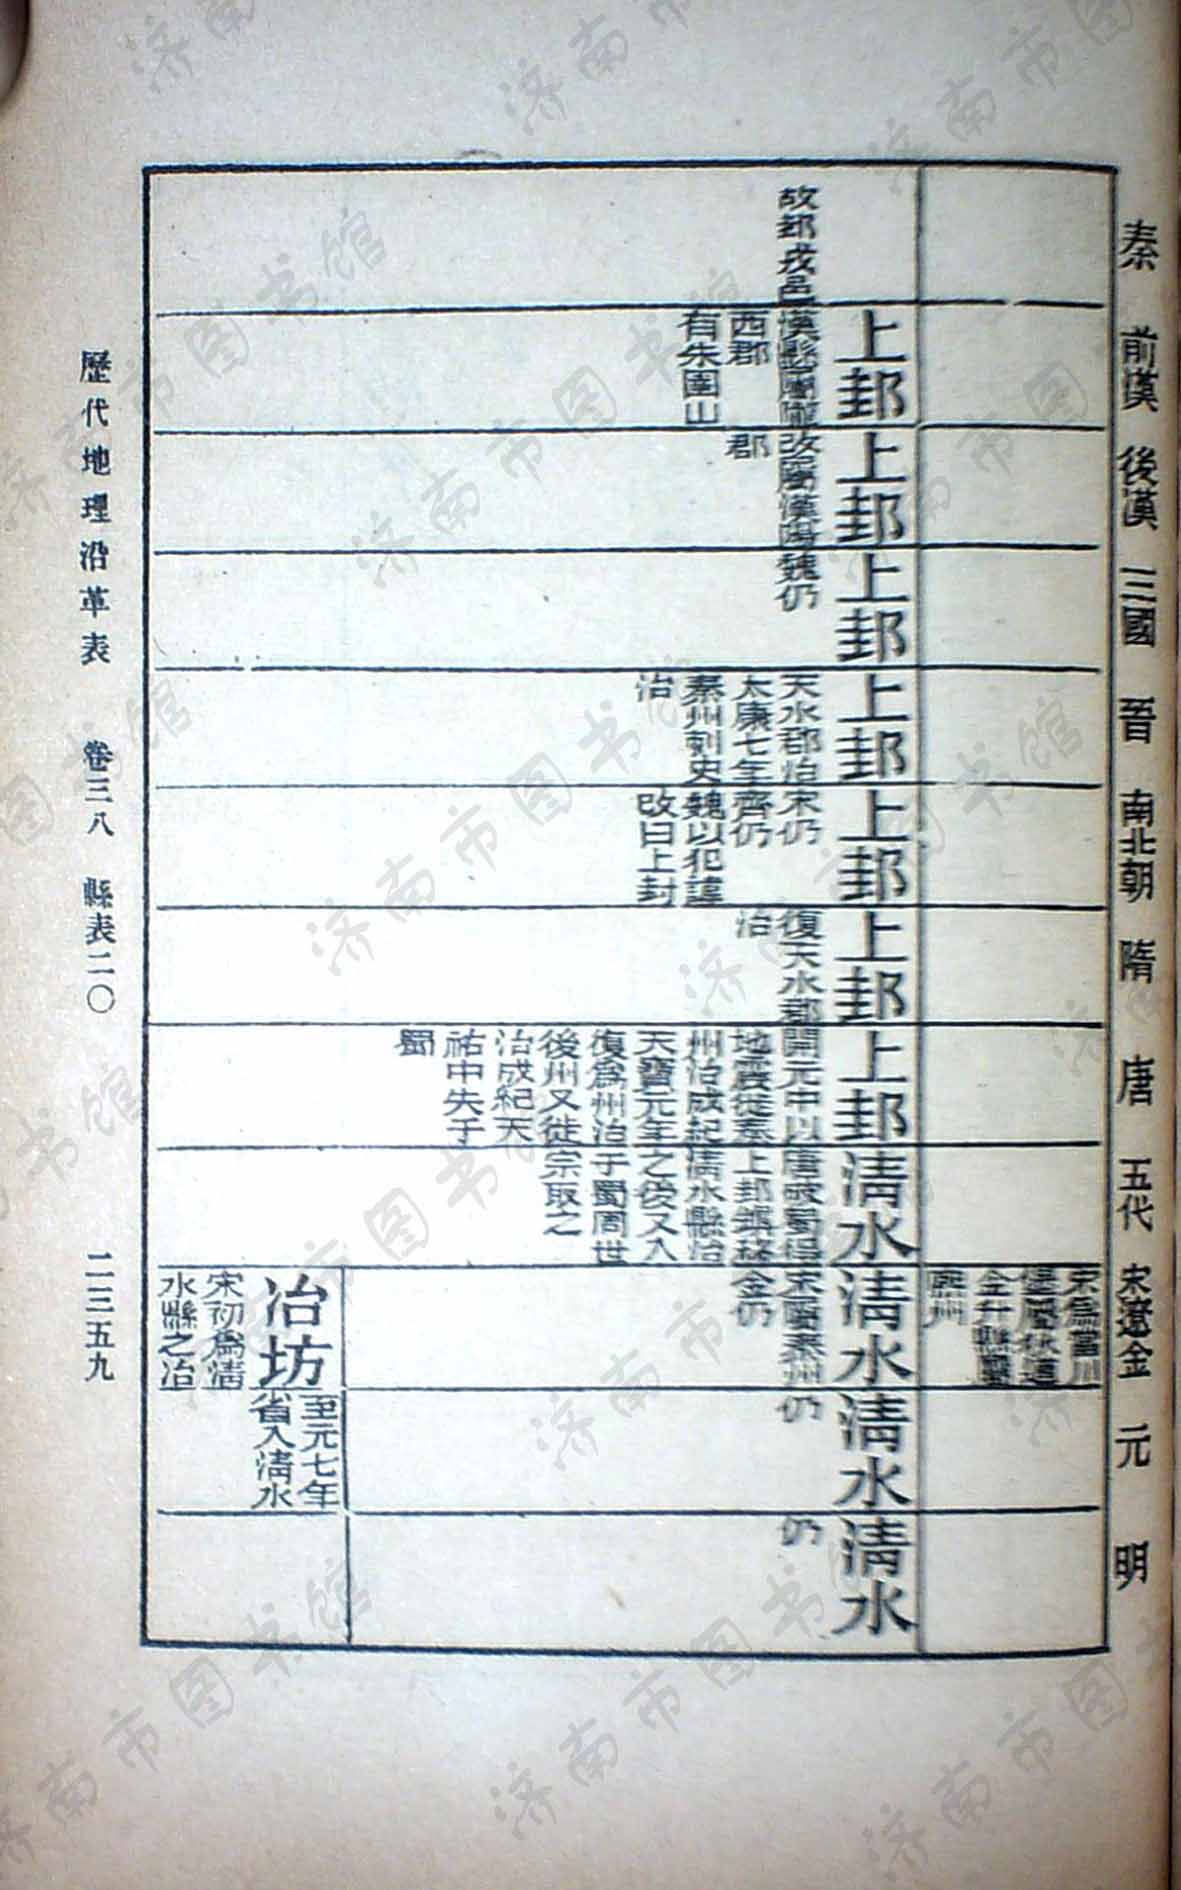 秦
前漢
後漢
三國
晉
南北朝
隋
唐
五代
宋遼金
元
明
宋爲當川
堡屬狄道
金升縣屬
熙州
故邽戎邑
上邽
漢縣屬隴
西郡
有朱圉山
上邽
改屬漢陽
郡
上邽
魏仍
上邽
天水郡治
太康七年
秦州刺史
治
上邽
宋仍
齊仍
魏以犯諱
改曰上封
上邽
復天水郡
治
上邽
開元中以
地震徙秦
州治成紀
天寶元年
復爲州治
後州又徙
治成紀天
祐中失于
蜀
清水
唐破蜀得
上邽鎮移
清水縣治
之後又入
于蜀周世
宗取之
清水
宋屬秦州
金仍
清水
仍
清水
仍
冶坊
宋初爲清
水縣之冶
至元七年
省入清水
歷代地理沿革表 卷三八 縣表二〇 二三五九
济南市图书馆